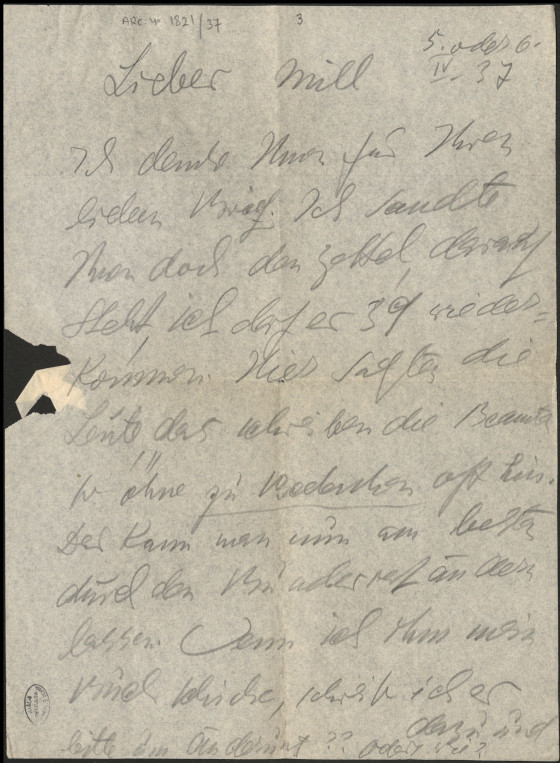 ARC. 4° 1821/37
3.
5. oder 6.
IV. 37
Lieber Mill
Ich danke Ihnen für Ihren
lieben Brief. Ich sandte
Ihnen doch den Zettel, darauf
steht ich darf er 39 wieder=
kommen. Hier sagten die
Leute das schreiben die Beamten
so ohne zu bedenken oft hin.
Das kann man nun am besten
durch den ändern
lassen. Wenn ich Ihnen mein
Buch schicke, schreib ich er
dazu und
bitte um Änderung?? oder wie?